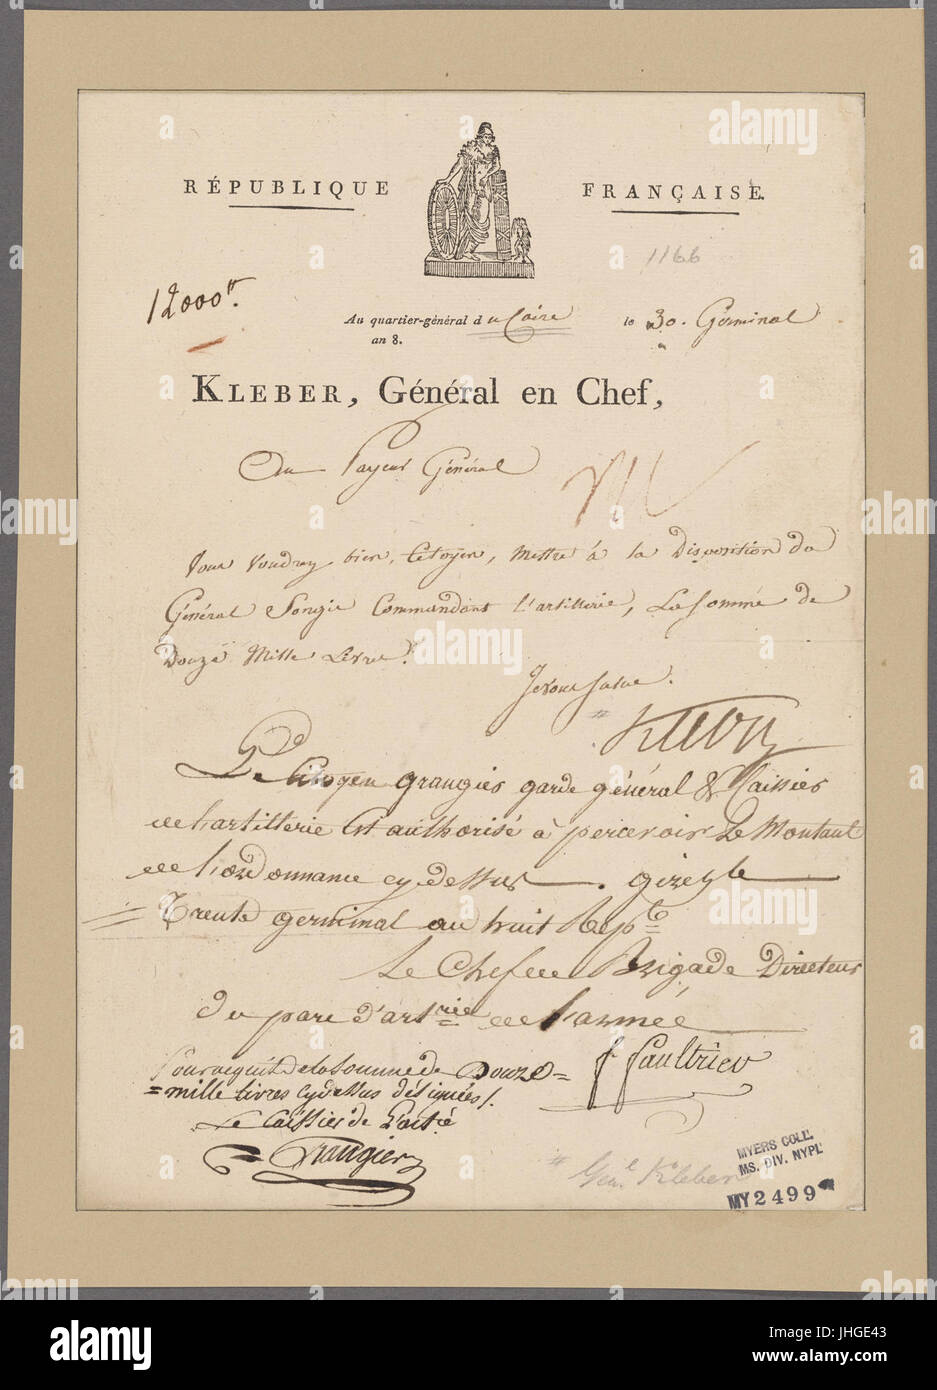 RÉPUBLIQUE FRANÇAISE.
1166
12000tt.
Au quartier-général du Caire le 30. Germinal
an 8.
KLEBER, Général en Chef,
Au Payeur Général
Vous voudrez bien, Citoyen, mettre à la Disposition du
Général Songis Commandant l'artillerie, La Somme de
Douze Mille Livres.
Je vous salue.
Kleber
Le Citoyen Grangier garde général & Caissier
de l'artillerie Est authorisé à percevoir Le Montant
de l'ordonnance cy dessus. gizeh le
Treute germinal an huit
Le Chef de Brigade Directeur
du parc d'artrie de l'armée
f faultrier
Pour acquit de la somme de Douze=
=mille livres cy dessus désignées /.
Le Caissier de l'artie
Grangier
Génl. Kleber
MYERS COLL.
MS. DIV. NYPL
MY2499
alamy
alamy stock photo
JHGE43
www.alamy.com